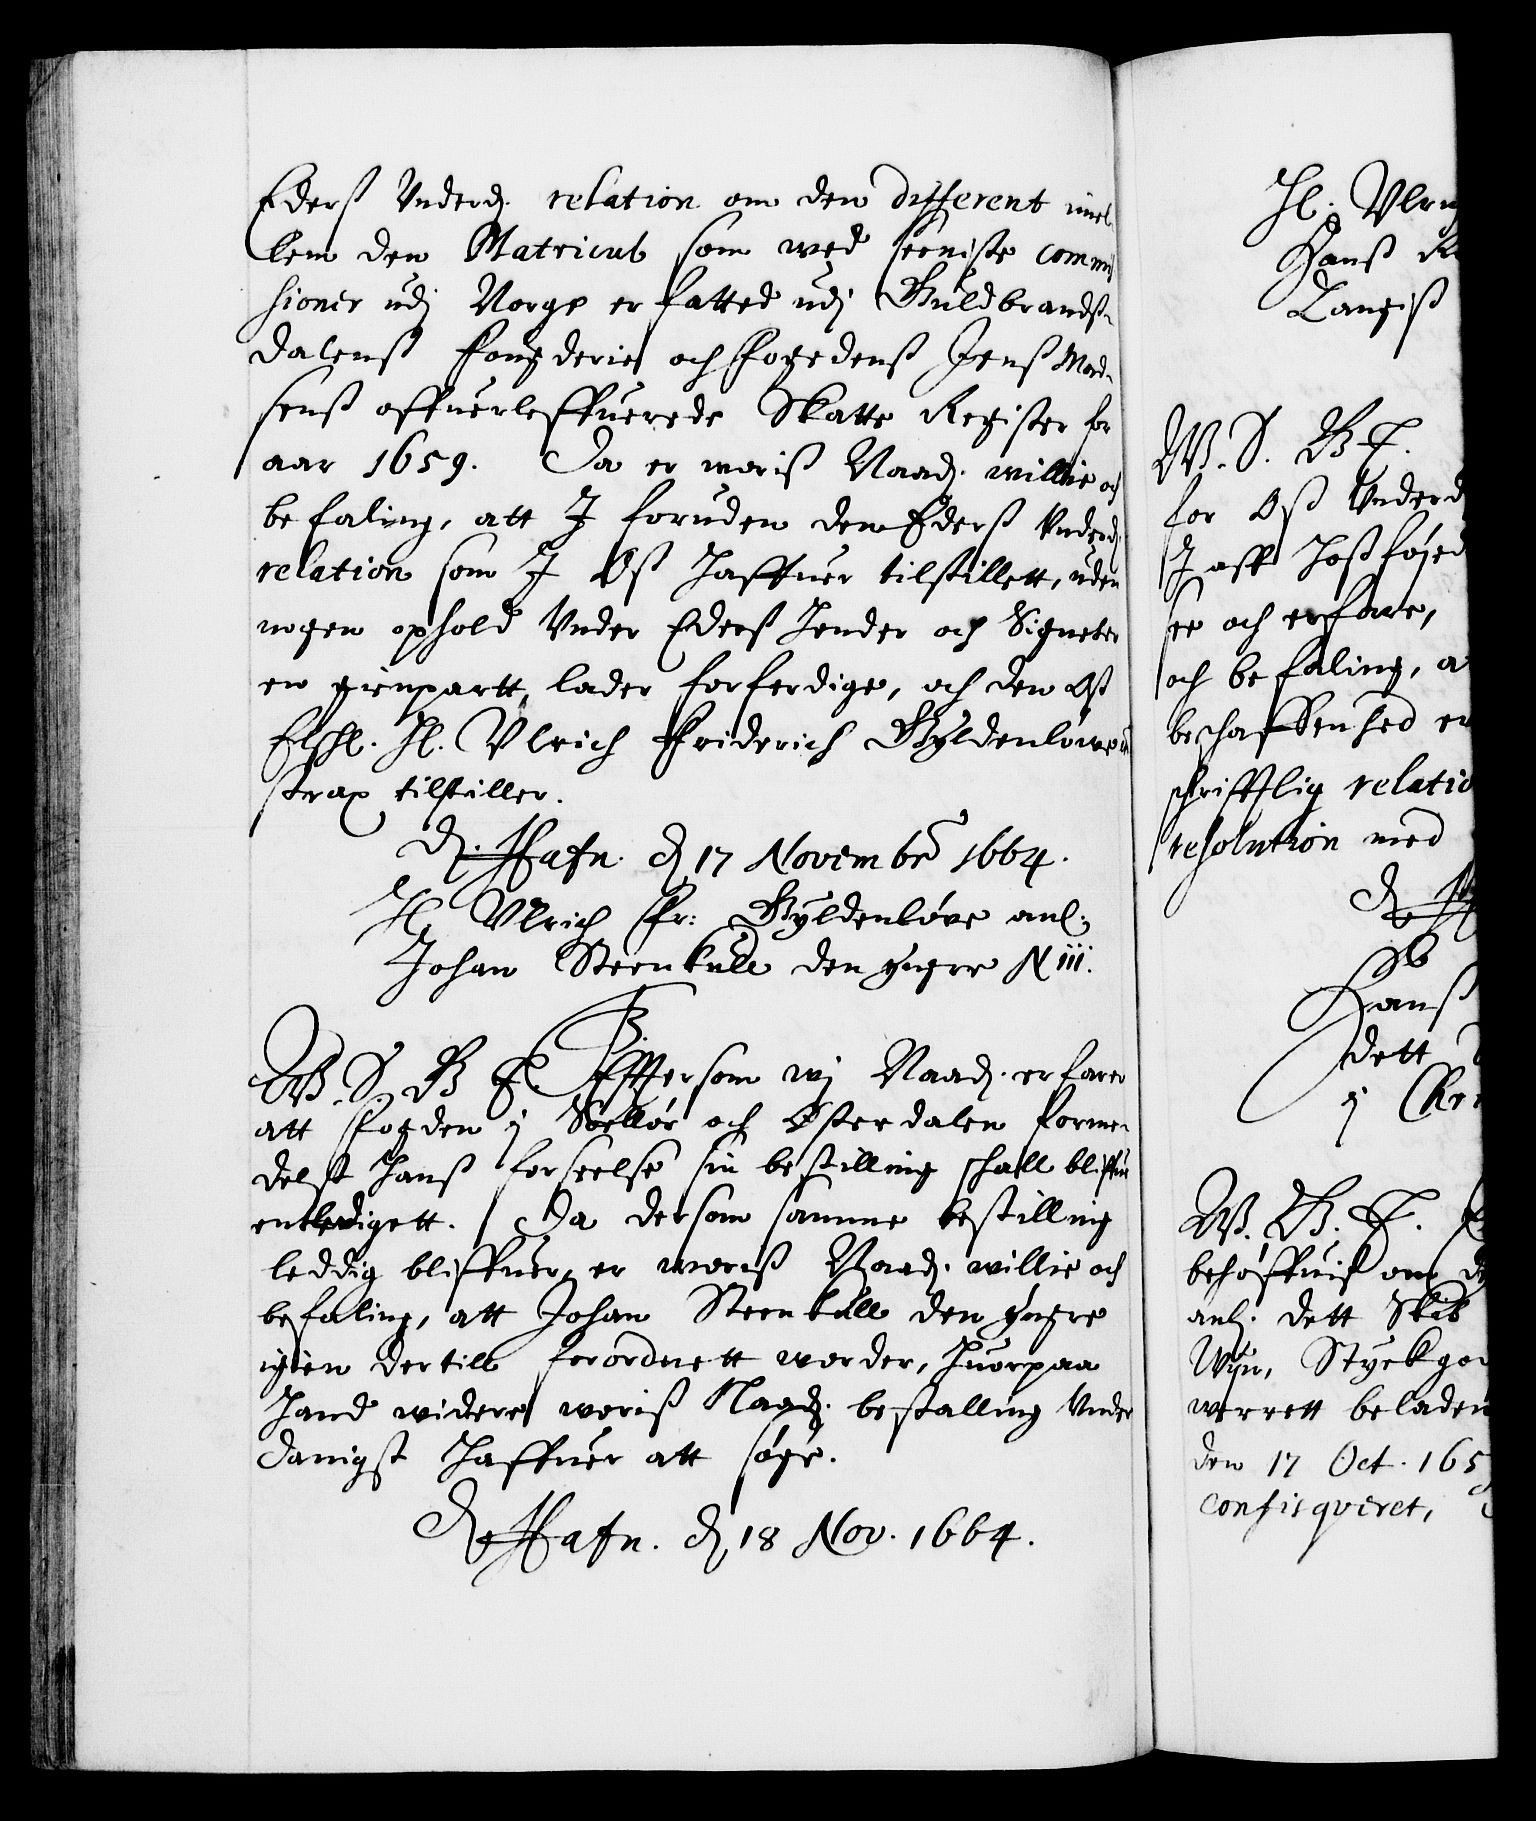 Ederß Underd. relation om den different imel
lem den Matricul som wed seeniste commis
sioner udj Norge er fatted udj Guldbrandß-
dalenß fougderie och ffogedenß Jenß Mad-
senß offuerleffuerede Skatte Register for
aar 1659. Da er woriß Naad. willie och
befaling, att I foruden den Ederß Underd.
relation som I Oß haffuer tilstillett, uden
nogen ophold Under Ederß hender och Signeter
en gienpartt lader forferdige, och den Oß
Elschl. Hl. Vlrich Friderich Gyldenløwe
strax tilstiller.
Hafn. d. 17 Novembr 1664.
Hl. Vlrich Fr: Gyldenløve anl:
Johan Steenkull den yngre N iij.
W. S. G. T. Efftersom wj Naad. erfarer
att ffogden j Soellør och Østerdalen forme-
delst hanß forseelse sin bestilling schall bliffue
entledigett. Da dersom samme bestilling
leddig bliffuer, er woriß Naad. willie och
befaling, att Johan Steenkull den yngre
igien dertill forordnett worder, huorpaa
hand widere woriß Naad. bestalling Under
danigst haffuer att søge.
Hafn. d. 18 Nov. 1664.
Hl. Vlri
Hanß
Langiß
W. S. G. T.
for Oß Underd
I aff hoßføjed
see och erfare,
och befaling, a
beschaffenhed er
schrifftlig relatio
resolution med
Hanß
dett
j
W. G. T.
behøffuiß om de
anl. dett Skib
Wijn, Styckgod
werrett beladen
den 17 Oct. 165
confisqveret,